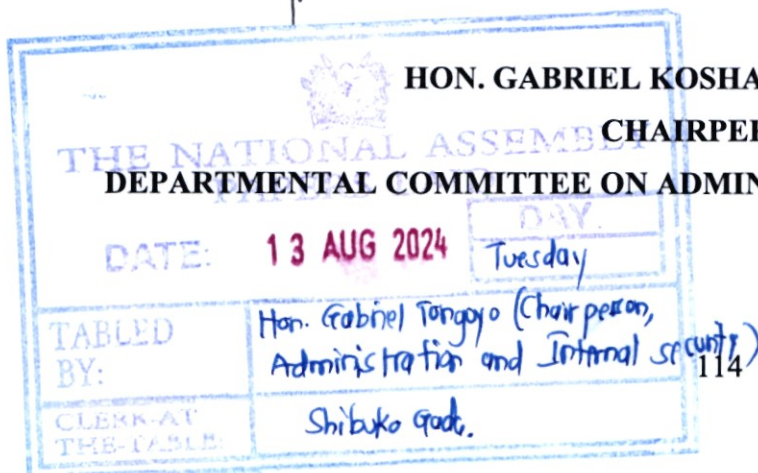 HON. GABRIEL KOSHA
CHAIRPER
THE NATIONAL ASSEMBLY
DEPARTMENTAL COMMITTEE ON ADMIN
PAPERS LAID
DATE: 13 AUG 2024
DAY.
Tuesday
TABLED BY:
Hon. Gabriel Tongoyo (Chairperson,
Administration and Internal security)
114
CLERK-AT THE-TABLE:
Shibuko